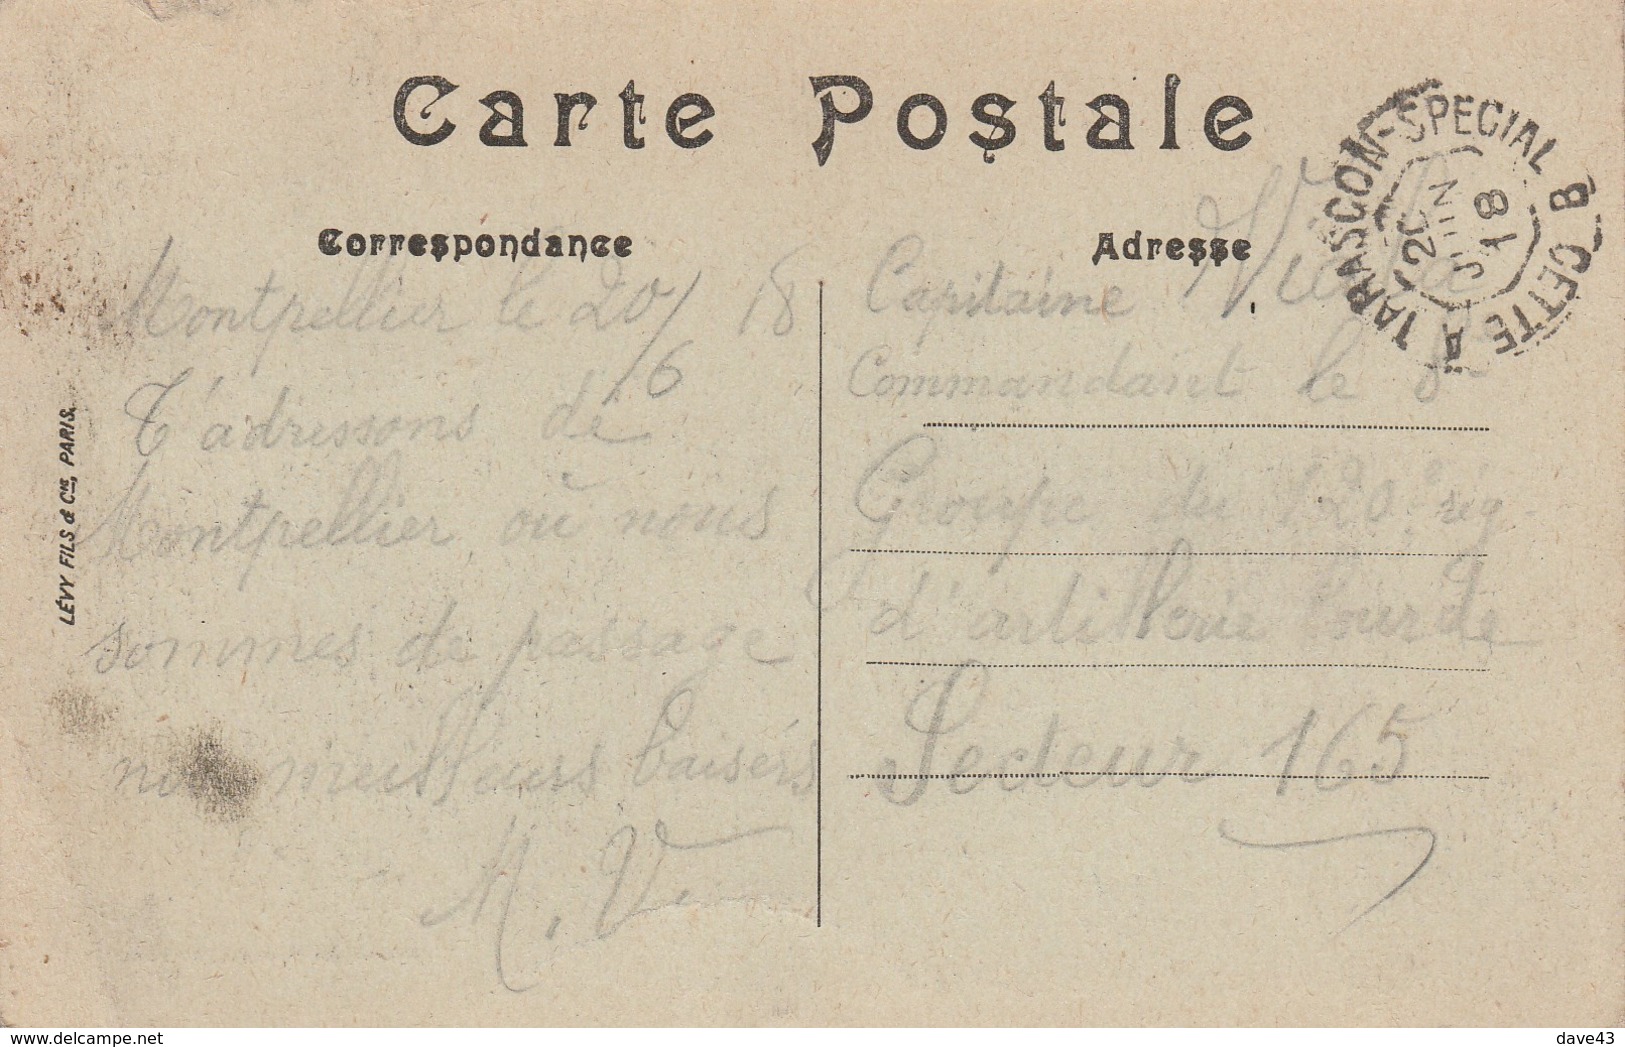 Carte Postale
Correspondance
Montpellier le 20/6 18
T'adressons de
Montpellier où nous
sommes de passage
nos meilleurs baisers
M. V
Adresse
Capitaine
Commandant le
Groupe du 120e rég.
d'artillerie lourde
Secteur 165
TARASCON-SPECIAL B CETTE à
20
JUIN
18
LÉVY FILS & Cie, PARIS.
www.delcampe.net
dave43